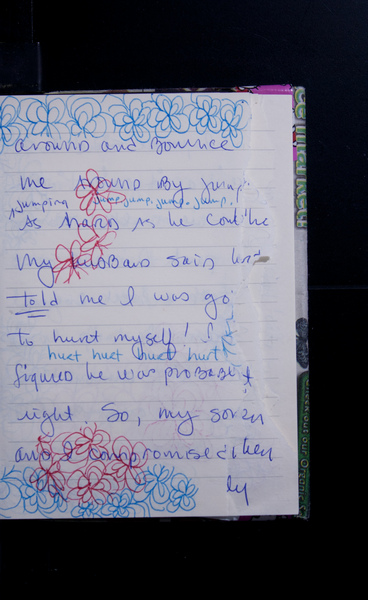 around and bounce
me around by jump
jumping jump. jump. jump. jump.
as hard as he could he
My husband said
told me I was go
to hurt myself! I
hurt hurt hurt hurt
figured he was probabl
right. So, my
and I compromised
ly